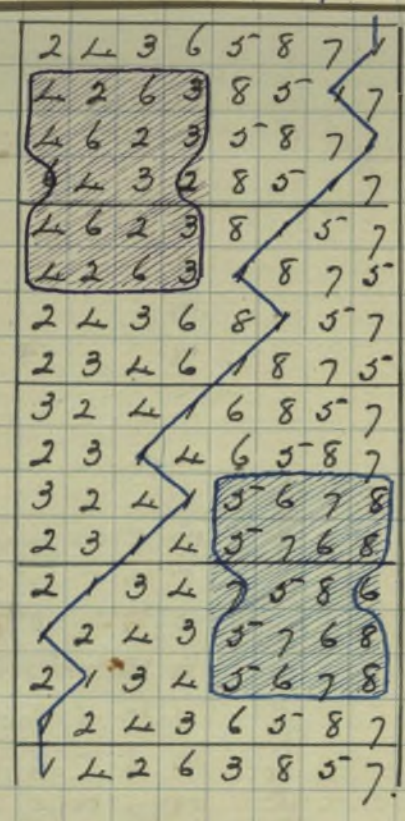 2 4 3 6 5 8 7 1
4 2 6 3 8 5 1 7
4 6 2 3 5 8 7 1
6 4 3 2 8 5 1 7
4 6 2 3 8 1 5 7
4 2 6 3 1 8 7 5
2 4 3 6 8 1 5 7
2 3 4 6 1 8 7 5
3 2 4 1 6 8 5 7
2 3 1 4 6 5 8 7
3 2 4 1 5 6 7 8
2 3 1 4 5 7 6 8
2 1 3 4 7 5 8 6
1 2 4 3 5 7 6 8
2 1 3 4 5 6 7 8
1 2 4 3 6 5 8 7
1 4 2 6 3 8 5 7.